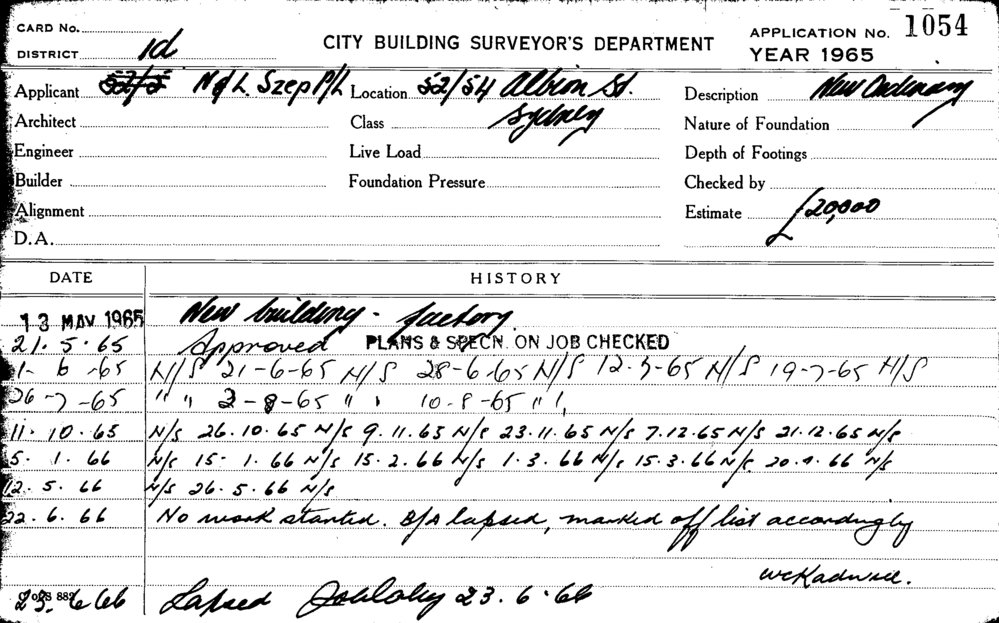 CARD No.
DISTRICT 1d
CITY BUILDING SURVEYOR'S DEPARTMENT
APPLICATION No. 1054
YEAR 1965
Applicant N & L Szep P/L Location 52/54 Albion St. Sydney Description New Ordinary
Architect Class Nature of Foundation
Engineer Live Load Depth of Footings
Builder Foundation Pressure Checked by
Alignment Estimate £20,000
D.A.
DATE HISTORY
13 MAY 1965 New building - factory.
21. 5. 65 Approved PLANS & SPECN. ON JOB CHECKED
1- 6 -65 N/S 21-6-65 N/S 28-6-65 N/S 12-7-65 N/S 19-7-65 N/S
26-7-65 " " 2-8-65 " " 10-8-65 " "
11. 10. 65 N/S 26.10.65 N/S 9.11.65 N/S 23.11.65 N/S 7.12.65 N/S 21.12.65 N/S
5. 1. 66 N/S 15. 1. 66 N/S 15.2.66 N/S 1.3.66 N/S 15.3.66 N/S 20.4.66 N/S
12. 5. 66 N/S 26.5.66 N/S
22. 6. 66 No work started. B/A lapsed, marked off list accordingly
23. 6 66 Lapsed 23.6.66